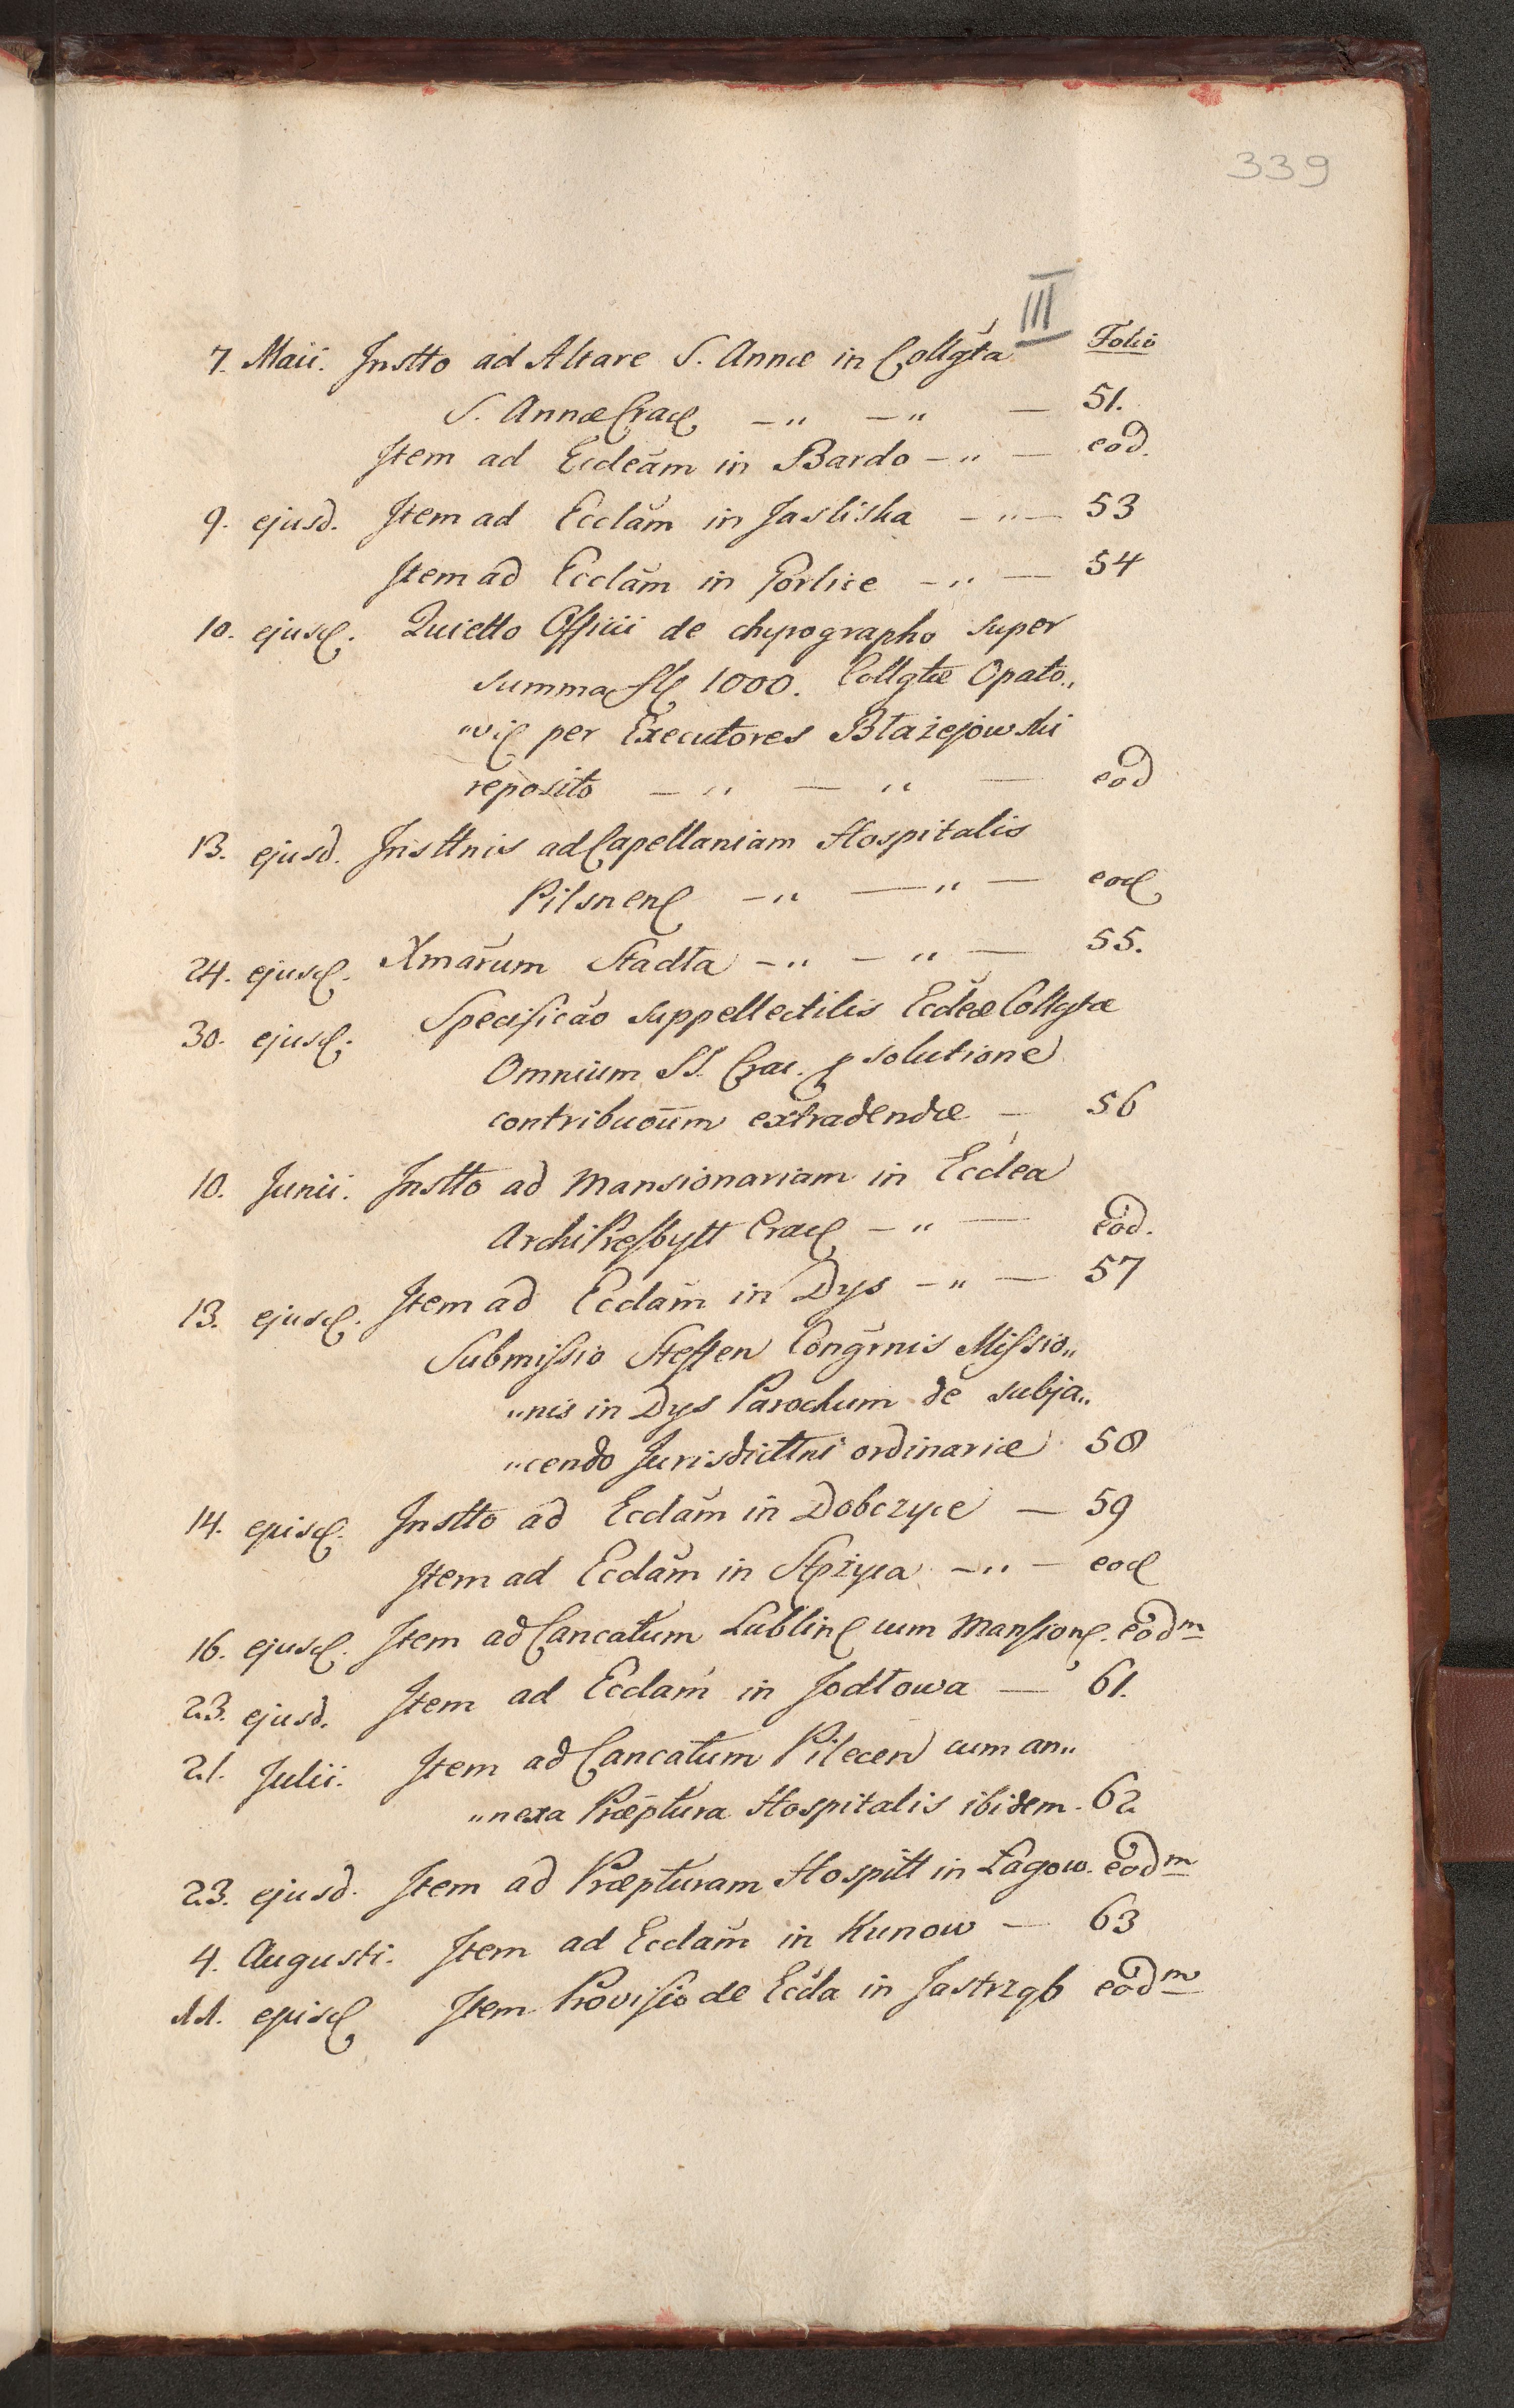 339
III
Folio
7. Maii. Instto ad Altare S. Annæ in Collgta
S. Annæ Crac — „ — „ — 51.
Item ad Eccleam in Bardo — „ — eod.
9. ejusd. Item ad Ecclam in Jasliska — „ — 53
Item ad Ecclam in Gorlice — „ — 54
10. ejusd. Quietto Officii de chyrographo super
summa fl 1000. Collgtæ Opato„
„vi per Executores Błażejowski
reposito — „ — „ — eod
13. ejusd. Insttnis ad Capellaniam Hospitalis
Pilsnen — „ — „ — eod
24. ejusd. Xmarum Stadta — „ — „ — 55.
30. ejusd. Specificao suppellectilis Eccleæ Collgtæ
Omnium SS. Crac. p solutione
contribuoum extradendæ — 56
10. Junii. Instto ad Mansionariam in Ecclea
ArchiPresbytt Crac — „ — eod.
13. ejusd. Item ad Ecclam in Dys — „ — 57
Submissio Steffen Congrnis Missio„
„nis in Dys Parochum de subja„
„cendo Jurisdicttni ordinariæ 58
14. ejusd. Instto ad Ecclam in Dobczyce — 59
Item ad Ecclam in Stężyca — „ — eod
16. ejusd. Item ad Cancatum Lublin cum Mansion. eodm
23. ejusd. Item ad Ecclam in Jodłowa — 61.
21. Julii. Item ad Cancatum Pilecen cum an„
„nexa Præptura Hospitalis ibidem. 62
23. ejusd. Item ad Præpturam Hospitt in Łagow. eodm
4. Augusti. Item ad Ecclam in Kunow — 63
11. ejusd Item Provisio de Eccla in Jastrząb eodm